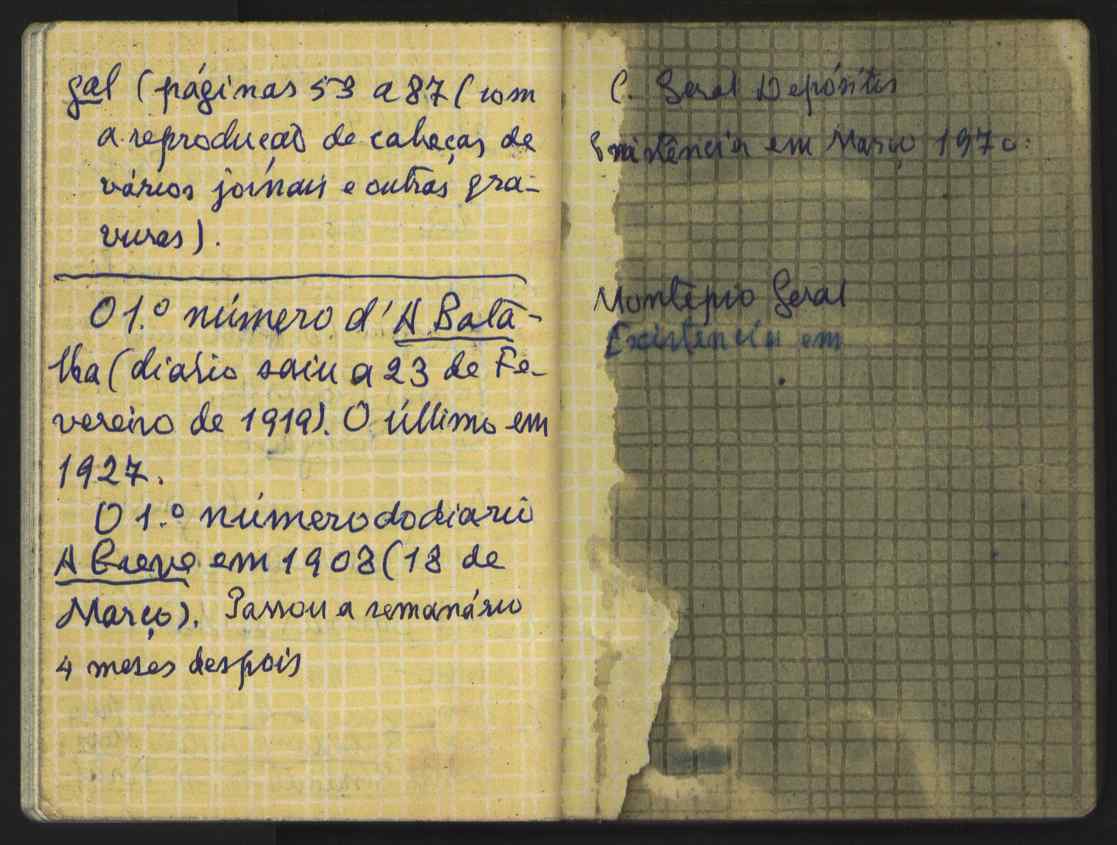 gal (páginas 53 a 87 (com
a reprodução de cabeças de
vários jornais e outras gra-
vuras).
O 1.º número d'A Bata-
lha (diário saiu a 23 de Fe-
vereiro de 1919). O último em
1927.
O 1.º número do diario
A Greve em 1908 (18 de
Março). Passou a semanário
4 meses despois
C. Geral Depósitos
Existência em Março 1970:
Montepio Geral
Existência em